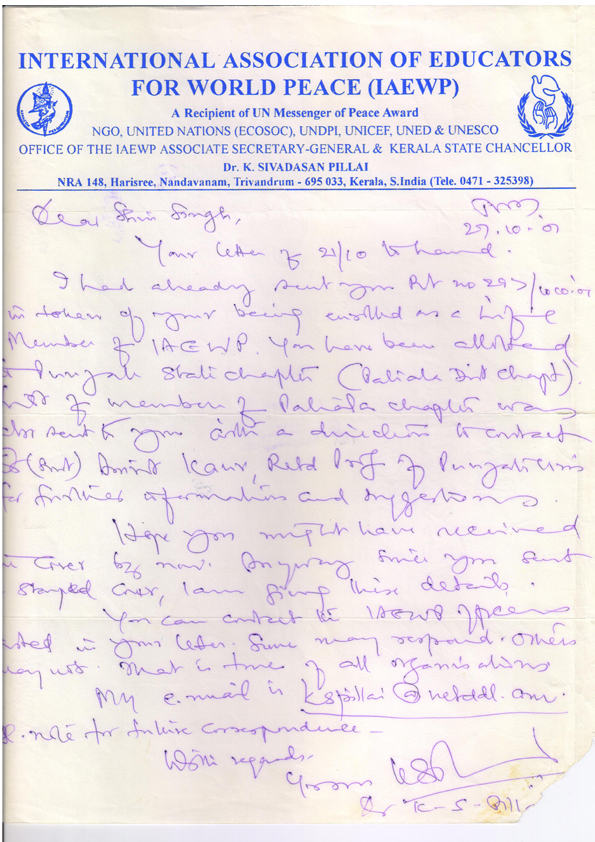 INTERNATIONAL ASSOCIATION OF EDUCATORS
FOR WORLD PEACE (IAEWP)
A Recipient of UN Messenger of Peace Award
NGO, UNITED NATIONS (ECOSOC), UNDPI, UNICEF, UNED & UNESCO
OFFICE OF THE IAEWP ASSOCIATE SECRETARY-GENERAL & KERALA STATE CHANCELLOR
Dr. K. SIVADASAN PILLAI
NRA 148, Harisree, Nandavanam, Trivandrum - 695 033, Kerala, S.India (Tele. 0471 - 325398)
Dear Shri Singh,
27.10.01
Your letter of 21/10 to hand.
I had already sent you Rt no 297/
in token of your being enrolled as a Life
Member of IAEWP. You have been allotted
Punjab State chapter (Patiala Dist Chapt).
list of members of Patiala chapter was
also sent to you with a direction to contact
(Smt) Amrit Kaur, Retd Prof of Punjabi Univ
for further information and suggestions.
Hope you might have received
cover by now. Anyway since you sent
stamped cover, I am giving these details.
You can contact the IAEWP officers
listed in your letter. Some may respond. Others
may not. That is true of all organisations
My e.mail is kspillai@
note for future correspondence -
With regards.
Yours
Dr K-S-Pillai